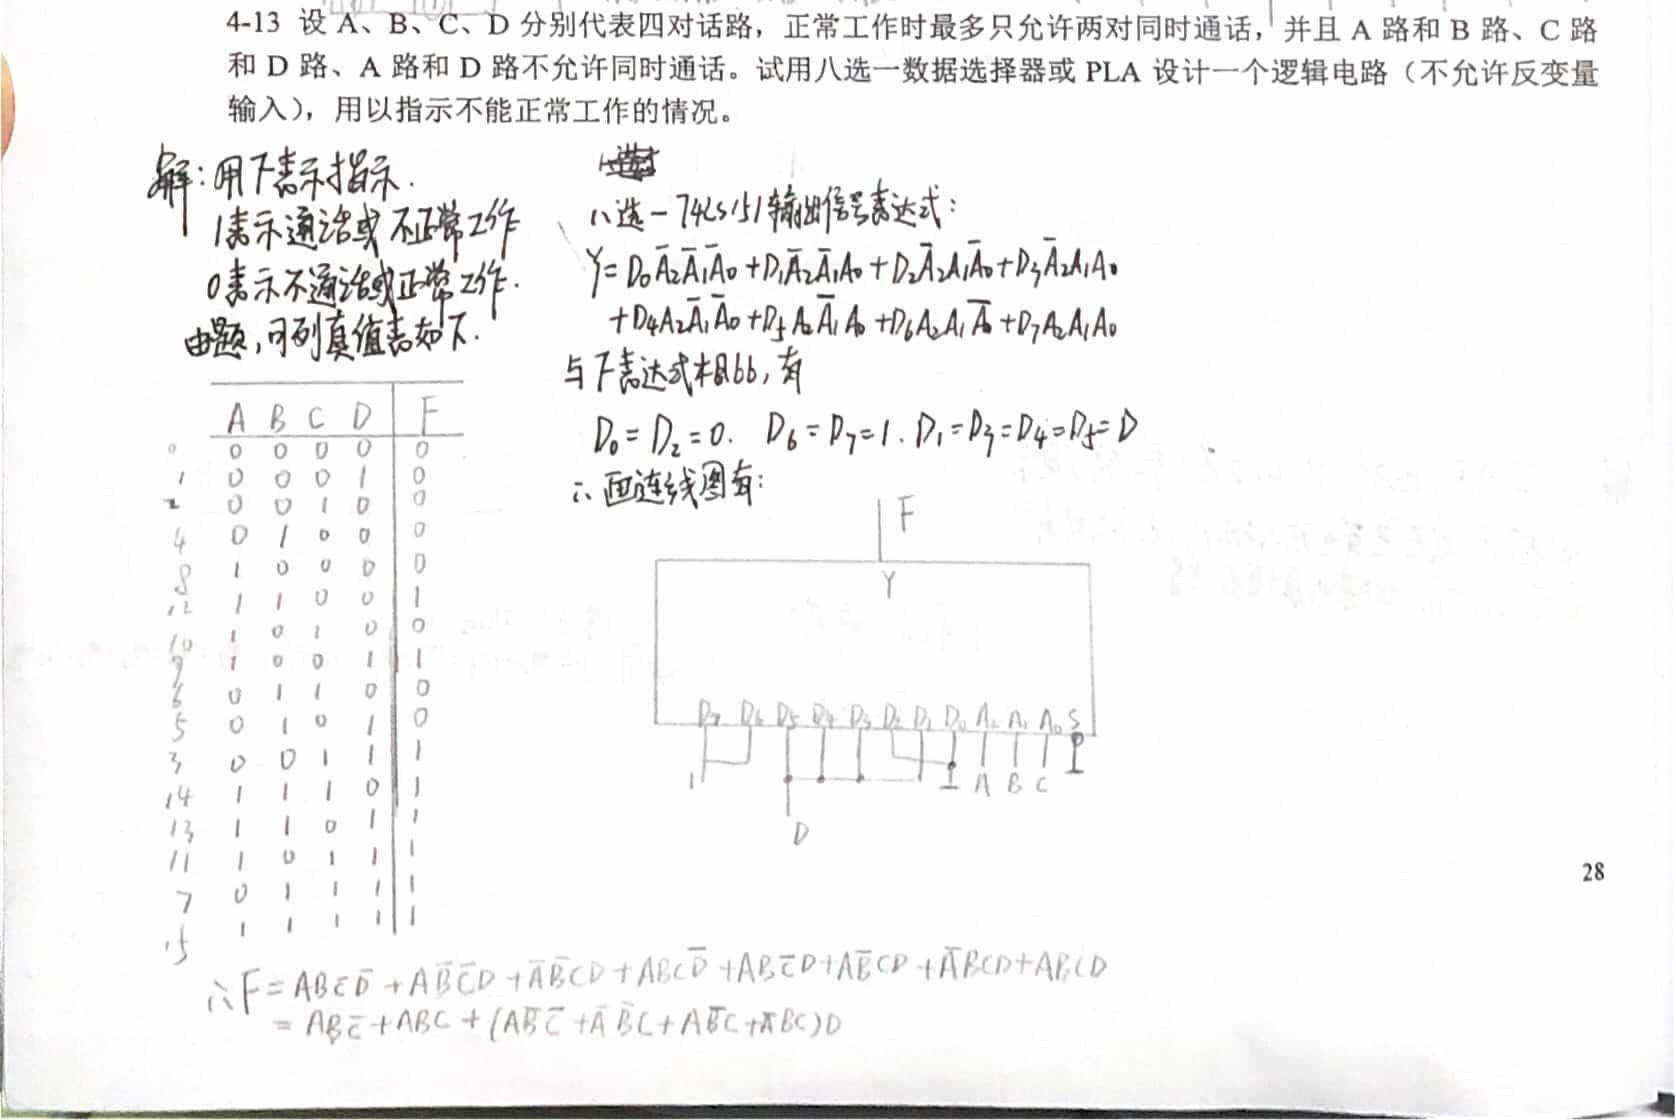 4-13 设 A、B、C、D 分别代表四对话路，正常工作时最多只允许两对同时通话，并且 A 路和 B 路、C 路
和 D 路、A 路和 D 路不允许同时通话。试用八选一数据选择器或 PLA 设计一个逻辑电路（不允许反变量
输入），用以指示不能正常工作的情况。
解：用下表示指示.
1表示通话或不正常工作
0表示不通话或正常工作.
由题,可列真值表如下.
A B C D F
0 0 0 0 0 0
1 0 0 0 1 0
2 0 0 1 0 0
4 0 1 0 0 0
8 1 0 0 0 0
12 1 1 0 0 1
10 1 0 1 0 0
9 1 0 0 1 1
6 0 1 1 0 0
5 0 1 0 1 0
3 0 0 1 1 1
14 1 1 1 0 1
13 1 1 0 1 1
11 1 0 1 1 1
7 0 1 1 1 1
15 1 1 1 1 1
∴F = ABC̅D̅ + AB̅C̅D + A̅B̅CD + ABCD̅ + ABC̅D + AB̅CD + A̅BCD + ABCD
= ABC̅ + ABC + (AB̅C̅ + A̅B̅C + AB̅C + A̅BC)D
八选一74LS151输出信号表达式：
Y = D₀A̅₂A̅₁A̅₀ + D₁A̅₂A̅₁A₀ + D₂A̅₂A₁A̅₀ + D₃A̅₂A₁A₀
+ D₄A₂A̅₁A̅₀ + D₅A₂A̅₁A₀ + D₆A₂A₁A̅₀ + D₇A₂A₁A₀
与下表达式相比,有
D₀ = D₂ = 0. D₆ = D₇ = 1. D₁ = D₃ = D₄ = D₅ = D
∴画连线图有：
F
Y
D₇ D₆ D₅ D₄ D₃ D₂ D₁ D₀ A₂ A₁ A₀ S
1 A B C
D
28